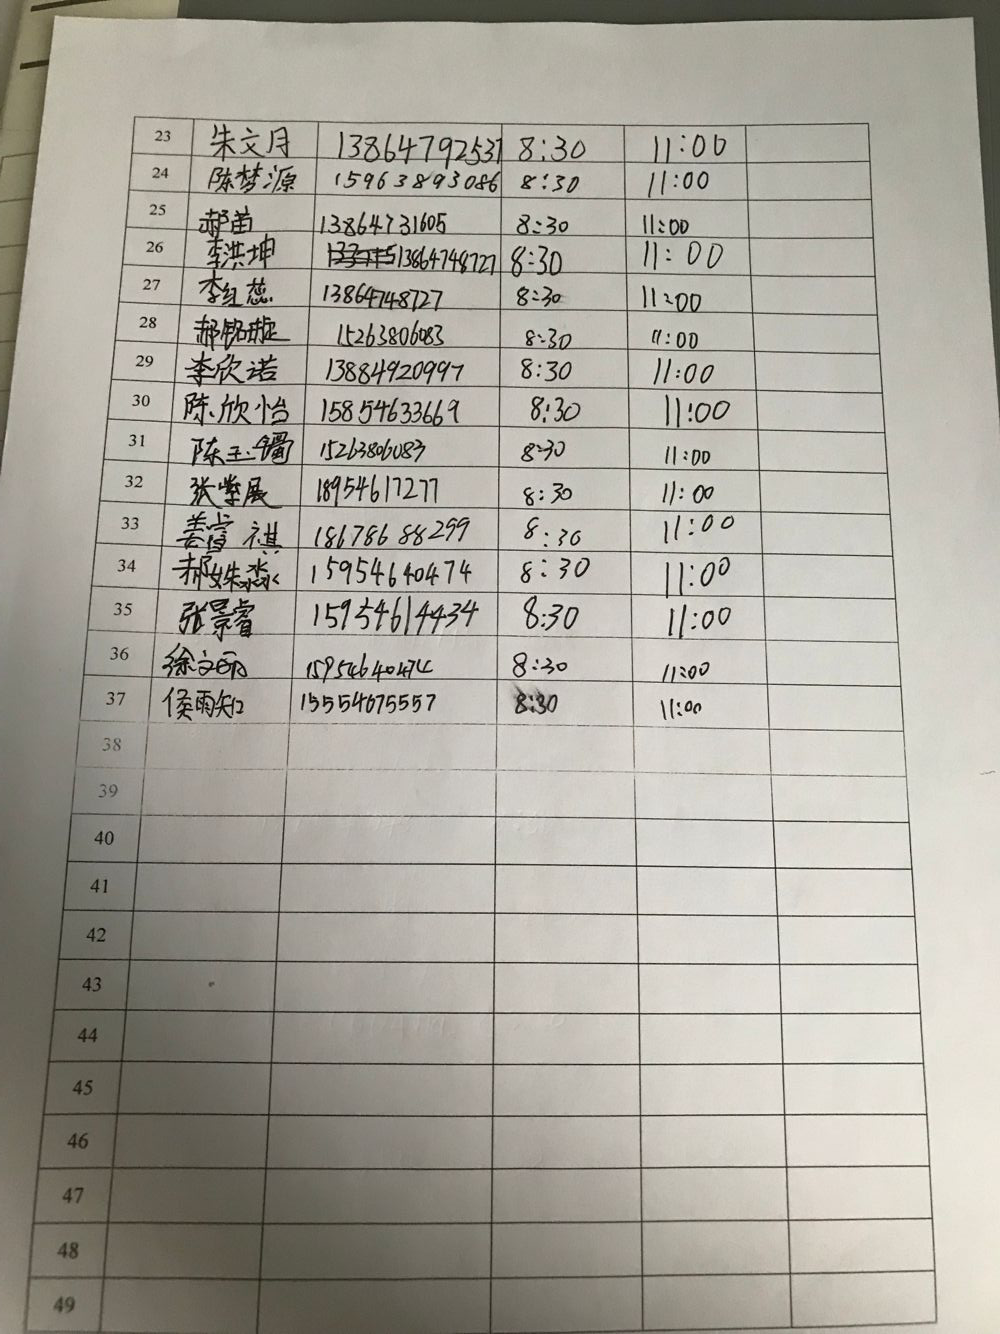 23 朱文月 13864792537 8:30 11:00
24 陈梦源 15963893086 8:30 11:00
25 郝苗 13864731605 8:30 11:00
26 李洪坤 13864748727 8:30 11:00
27 李红蕊 13864748727 8:30 11:00
28 郝铭璇 15263806083 8:30 11:00
29 李欣诺 13884920997 8:30 11:00
30 陈欣怡 15854633669 8:30 11:00
31 陈玉镯 15263806083 8:30 11:00
32 张紫展 18954617277 8:30 11:00
33 姜睿祺 18678688299 8:30 11:00
34 郝姝淼 15954640474 8:30 11:00
35 张景睿 15954614434 8:30 11:00
36 徐文丽 15954640474 8:30 11:00
37 侯雨知 15554675557 8:30 11:00
38
39
40
41
42
43
44
45
46
47
48
49